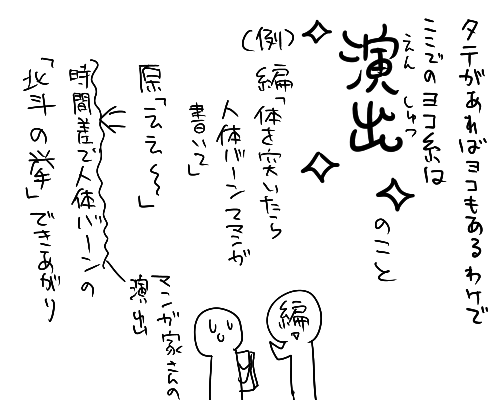 タテがあればヨコもあるわけで
ここでのヨコ糸は
演出
えん しゅつ
のこと
(例)
編「体を突いたら
人体バーンてマンガ
書いて」
原「ええ〜」
時間差で人体バーンの
「北斗の拳」できあがり
マンガ家さんの
演出
編